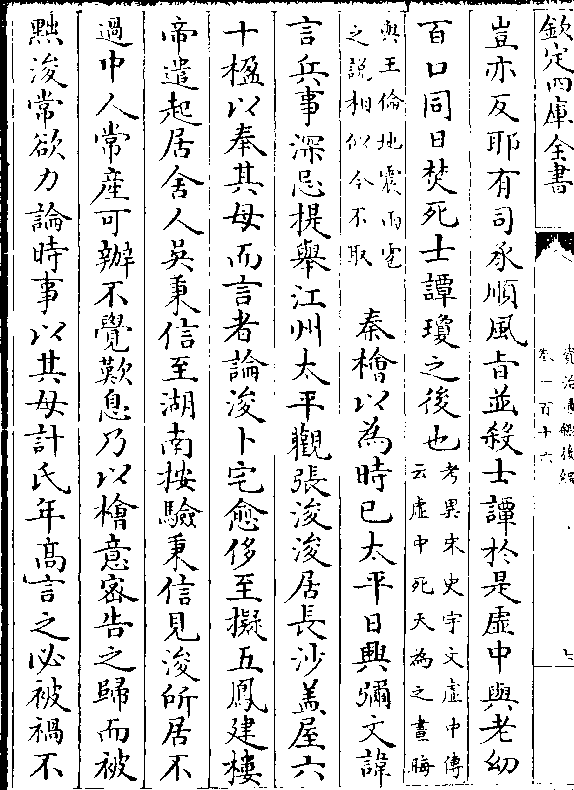 欽定四庫全書
資治通鑑後編
卷一百十六
豈亦反耶有司承順風旨並殺士譚於是虛中與老幼
百口同日焚死士譚瓊之後也
考異宋史宇文虛中傳
云虛中死天為之晝晦
與王倫地震雨雹
之說相似今不取
秦檜以為時已太平日興彌文諱
言兵事深忌提舉江州太平觀張浚浚居長沙蓋屋六
十楹以奉其母而言者論浚卜宅愈侈至擬五鳳建樓
帝遣起居舍人吳秉信至湖南按驗秉信見浚所居不
過中人常產可辦不覺歎息乃以檜意密告之歸而被
黜浚常欲力論時事以其母計氏年髙言之必被禍不